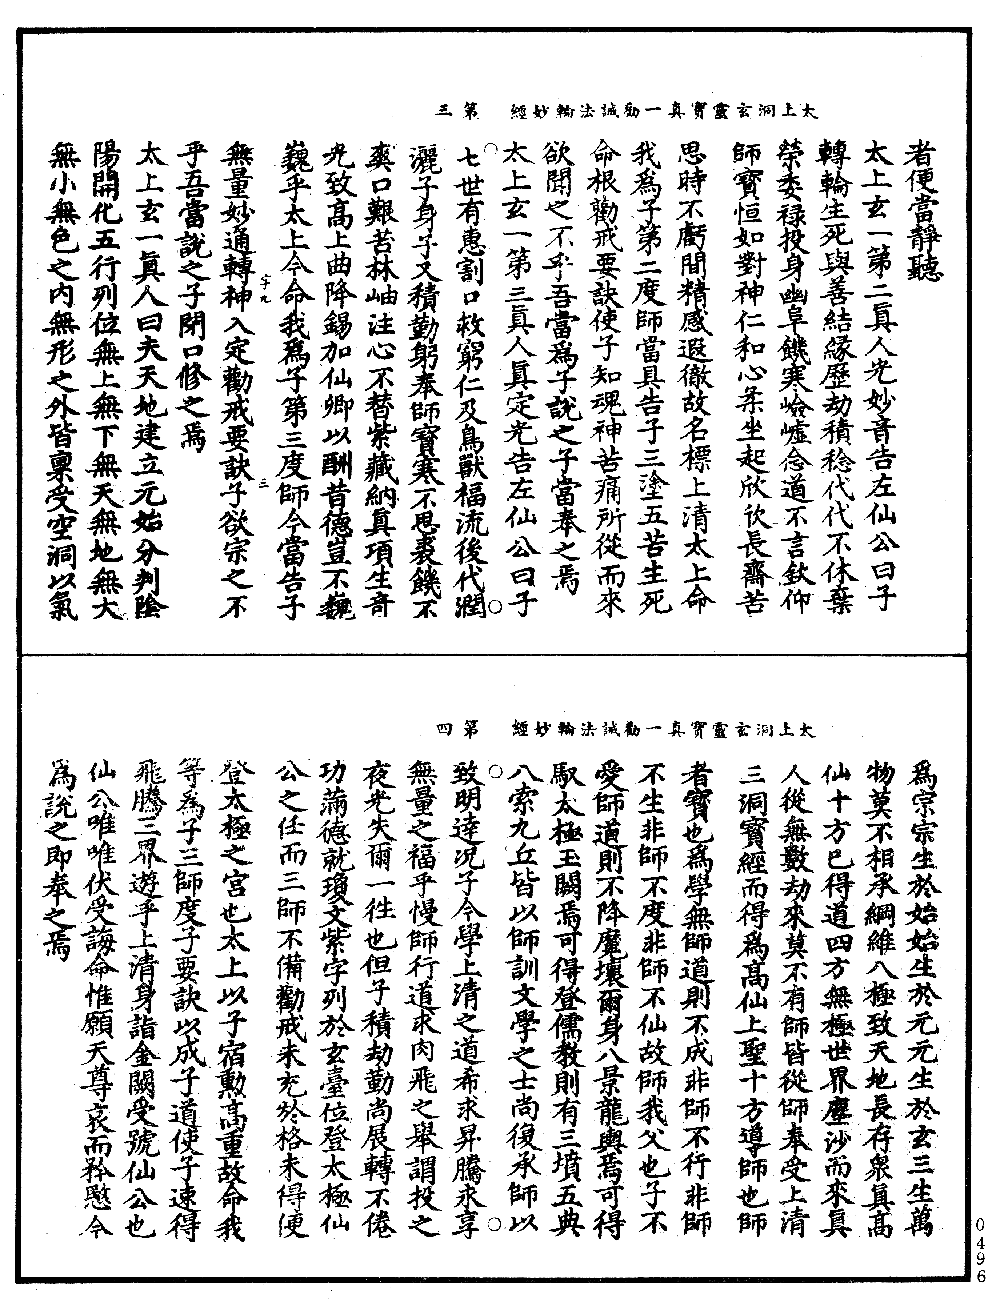 太上洞玄靈寶真一勸誡法輪妙經　第三
者便當靜聽
太上玄一第二真人光妙音告左仙公曰子
轉輪生死與善結緣歷劫積稔代代不休棄
榮委祿投身幽阜饑寒嶮巇念道不言欽仰
師寶恒如對神仁和心柔坐起欣欣長齋苦
思時不虧閒精感遐徹故名標上清太上命
我為子第二度師當具告子三塗五苦生死
命根勸戒要訣使子知魂神苦痛所從而來
欲聞之不乎吾當為子說之子當奉之焉
太上玄一第三真人真定光告左仙公曰子
七世有惠割口救窮仁及鳥獸福流後代潤
灑子身子又積勤躬奉師寶寒不思裘饑不
爽口艱苦林岫注心不替紫藏納真項生奇
光致高上曲降錫加仙卿以酬昔德豈不巍
巍乎太上今命我為子第三度師今當告子
無量妙通轉神入定勸戒要訣子欲宗之不
乎吾當說之子閉口修之焉
太上玄一真人曰夫天地建立元始分判陰
陽開化五行列位無上無下無天無地無大
無小無色之內無形之外皆稟受空洞以氣
太上洞玄靈寶真一勸誡法輪妙經　第四
為宗宗生於始始生於元元生於玄三生萬
物莫不相承綱維八極致天地長存眾真高
仙十方已得道四方無極世界塵沙而來真
人從無數劫來莫不有師皆從師奉受上清
三洞寶經而得為高仙上聖十方導師也師
者寶也為學無師道則不成非師不行非師
不生非師不度非師不仙故師我父也子不
愛師道則不降魔壞爾身八景龍輿焉可得
馭太極玉闕焉可得登儒教則有三墳五典
八索九丘皆以師訓文學之士尚復承師以
致明達況子今學上清之道希求昇騰永享
無量之福乎慢師行道求肉飛之舉謂投之
夜光失爾一往也但子積劫勤尚展轉不倦
功滿德就瓊文紫字列於玄臺位登太極仙
公之任而三師不備勸戒未充於格未得便
登太極之宮也太上以子宿勳高重故命我
等為子三師度子要訣以成子道使子速得
飛騰三界遊乎上清身詣金闕受號仙公也
仙公唯唯伏受誨命惟願天尊哀而矜愍今
為說之即奉之焉
0496